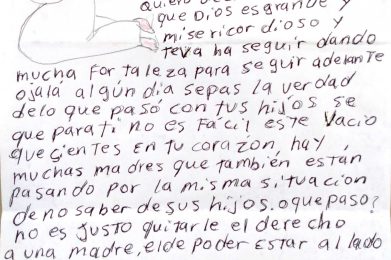 que Dios es grande y
misericordioso y
teva ha seguir dando
mucha fortaleza para seguir adelante
ojalá algún dia sepas la verdad
delo que pasó con tus hijos se
que para ti no es fácil este vacio
que cientes en tu corazón, hay,
muchas madres que también están
pasando por la misma situacion
de no saber de sus hijos. o que paso?
no es justo quitarle el derecho
a una madre, el de poder estar al lado